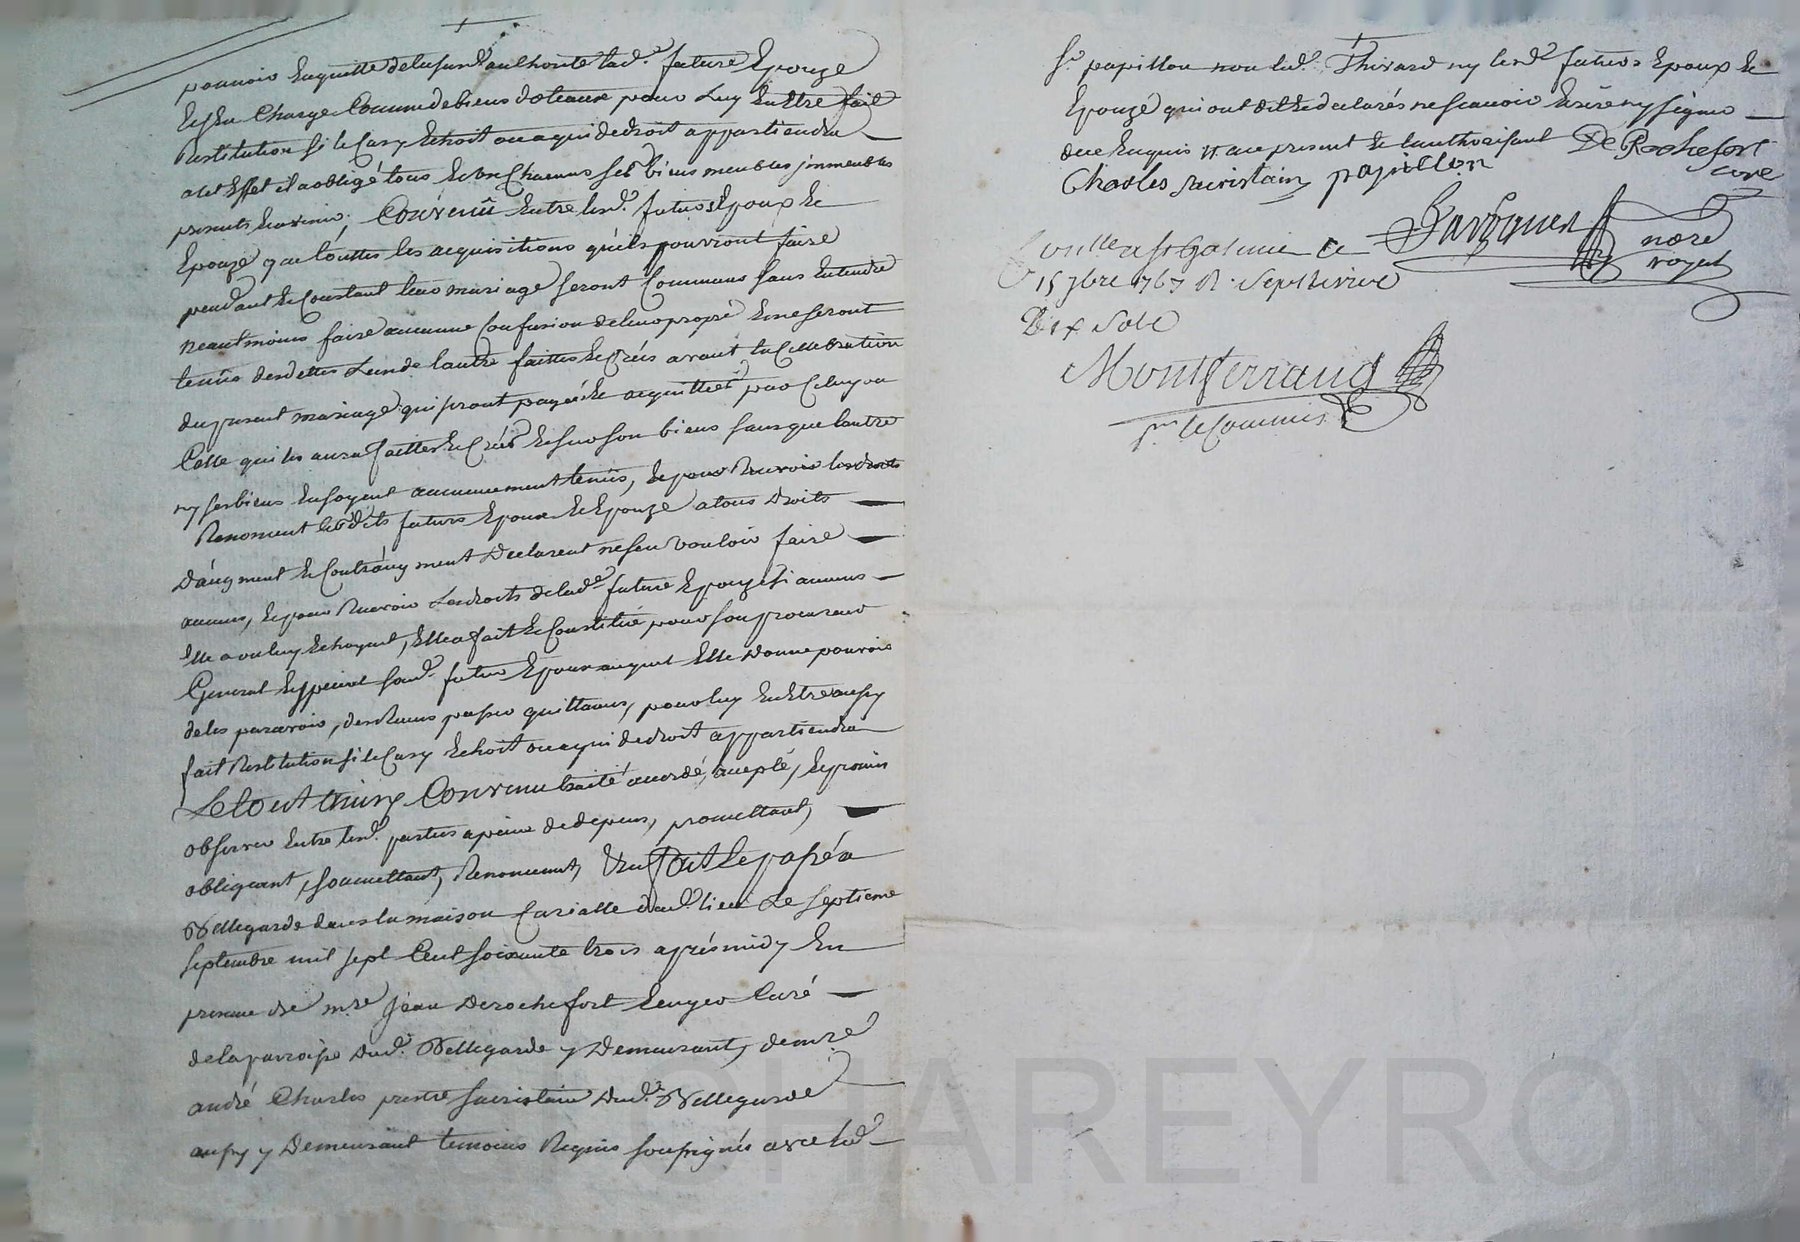 pouvoir Enquitte delapresente authorite lad.e future Epouze
Ensera Charge Comme debiens doteaux pour Luy EnEttre fait
Restitution si leCasy Echoit ouaqui dedroit appartiendra
acet Effet ila obligé tous Et un Chacuns ses biens meubles immeubles
presents Eavenir, Convenû Entre lesd. futurs Epoux Et
Epouze que touttes les acquisitions quils pourront faire
pendant EtConstant leur mariage seront Communs sans Entendre
neantmoins faire aucunne Confusion deleur propre Ene seront
tenûs desdettes Lun de lautre faittes Et Créés avant la Cellebration
dupresent mariage qui seront payées Et acquittées par Celuy ou
Celle qui les aura faittes Et Créés Et sur son biens sans que lautre
ny ses biens Ensoyent aucunnement tenûs,
Renoncent lesdits futurs Epoux Et Epouze atous Droits
Daugment EtContraugment Declarent nesen vouloir faire
aucuns, Et pour Recevoir Lesdroits delad.e future Epouze si aucuns
Elle a ouluy Echoyent, Elle a fait EtConstitué pour son procureur
General Espécial sond. futur Epoux auquel Elle Donne pouvoir
deles parcevoir, desRecus passer quittances, pourluy EnEtre aussy
fait Restitution si leCasy Echoit ouaqui dedroit appartiendra
Letout Ainsy Convenu traité accordé, accepté, Et promis
observer Entre lesd. parties apeine dedepens, promettant,
obligeant, soumettant, Renoncent, fait Et passé a
Bellegarde dans la maison Curialle dud. lieu Le septieme
septembre mil sept Cent soixante trois aprés midy En
presence de m.re Jean Derochefort Ecuyer Curé
dela parroisse dud. Bellegarde y Demeurant, de m.re
andré Charles prestre sacristain dud. Bellegarde
aussy y Demeurant temoins Requis soussignés avec led.
S.r papillon non lad. Thivard ny lesd. futurs Epoux Et
Epouze qui ont dit Et declarés nescavoir Escrire ny signer
dece Enquis
Charles sacristain papillon De Rochefort
curé
Controllé a St Galmier ce
15 7bre 1763 R. Sept livres
Dix Sols
nore
royal
Montferrand
pour le Commis
CHAREYRON